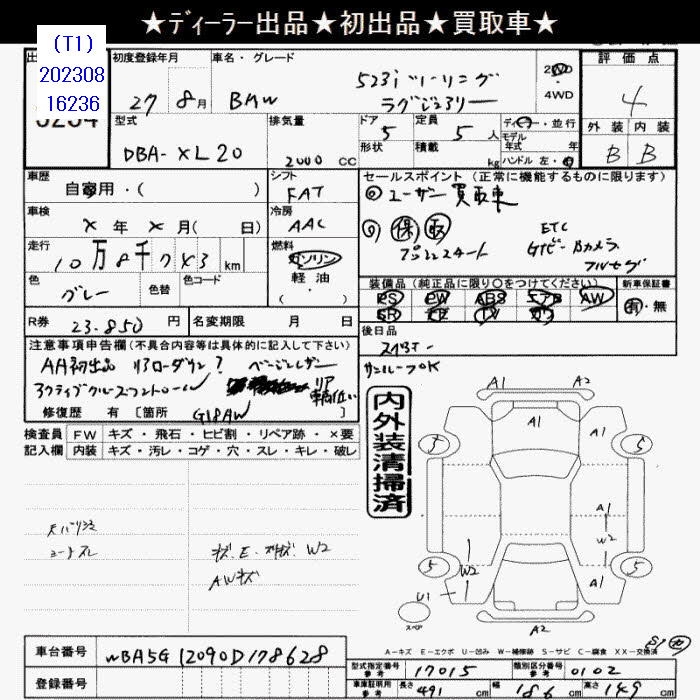 ★ディーラー出品★初出品★買取車★
(T1)
202308
16236
初度登録年月
27年8月
車名・グレード
BMW
523i ツーリング
ラグジュアリー
2WD
・
4WD
評価点
4
外装 内装
B B
型式
DBA-XL20
排気量
2000 CC
ドア
5
定員
5人
形状
積載
kg
ディーラー・並行
モデル
年式 年
ハンドル 左・右
車歴
自家用・( )
シフト
FAT
セールスポイント(正常に機能するものに限ります)
◎ユーザー買取車
車検
×年×月( 日)
冷房
AAC
保 取
ETC
プッシュスタート
ナビ Bカメラ
フルセグ
走行
10万8千743km
燃料
ガソリン
・
軽油
・
( )
色
グレー
色替
色コード
装備品(純正品に限り○をつけてください)
PS PW ABS エアB AW
SR TV
新車保証書
有・無
R券 23,850円
名変期限 月 日
後日品
スペアキー
サンルーフOK
注意事項申告欄(不具合内容等は具体的に記入して下さい)
AA初出品 リアローダウン? ベージュレザー
アクティブクルーズコントロール
修復歴 有 [箇所 ]
G18AW
検査員
記入欄
FW キズ・飛石・ヒビ割・リペア跡・×要
内装 キズ・汚レ・コゲ・穴・スレ・キレ・破レ
内外装清掃済
天バリ汚
シートスレ
キズ.E・スリキズ W2
AWキズ
A1 A2
A1 A1
3 5
A1
W2
5 5
W2 A1
U1
スペア
A2
A-キズ E-エクボ U-凹み W-補修跡 S-サビ C-腐食 XX-交換済
車台番号
WBA5G12090D178628
登録番号
型式指定番号
参考
17015
類別区分番号
参考
0102
車庫証明用
参考
長さ 491 cm 幅 186 cm 高さ 149 cm